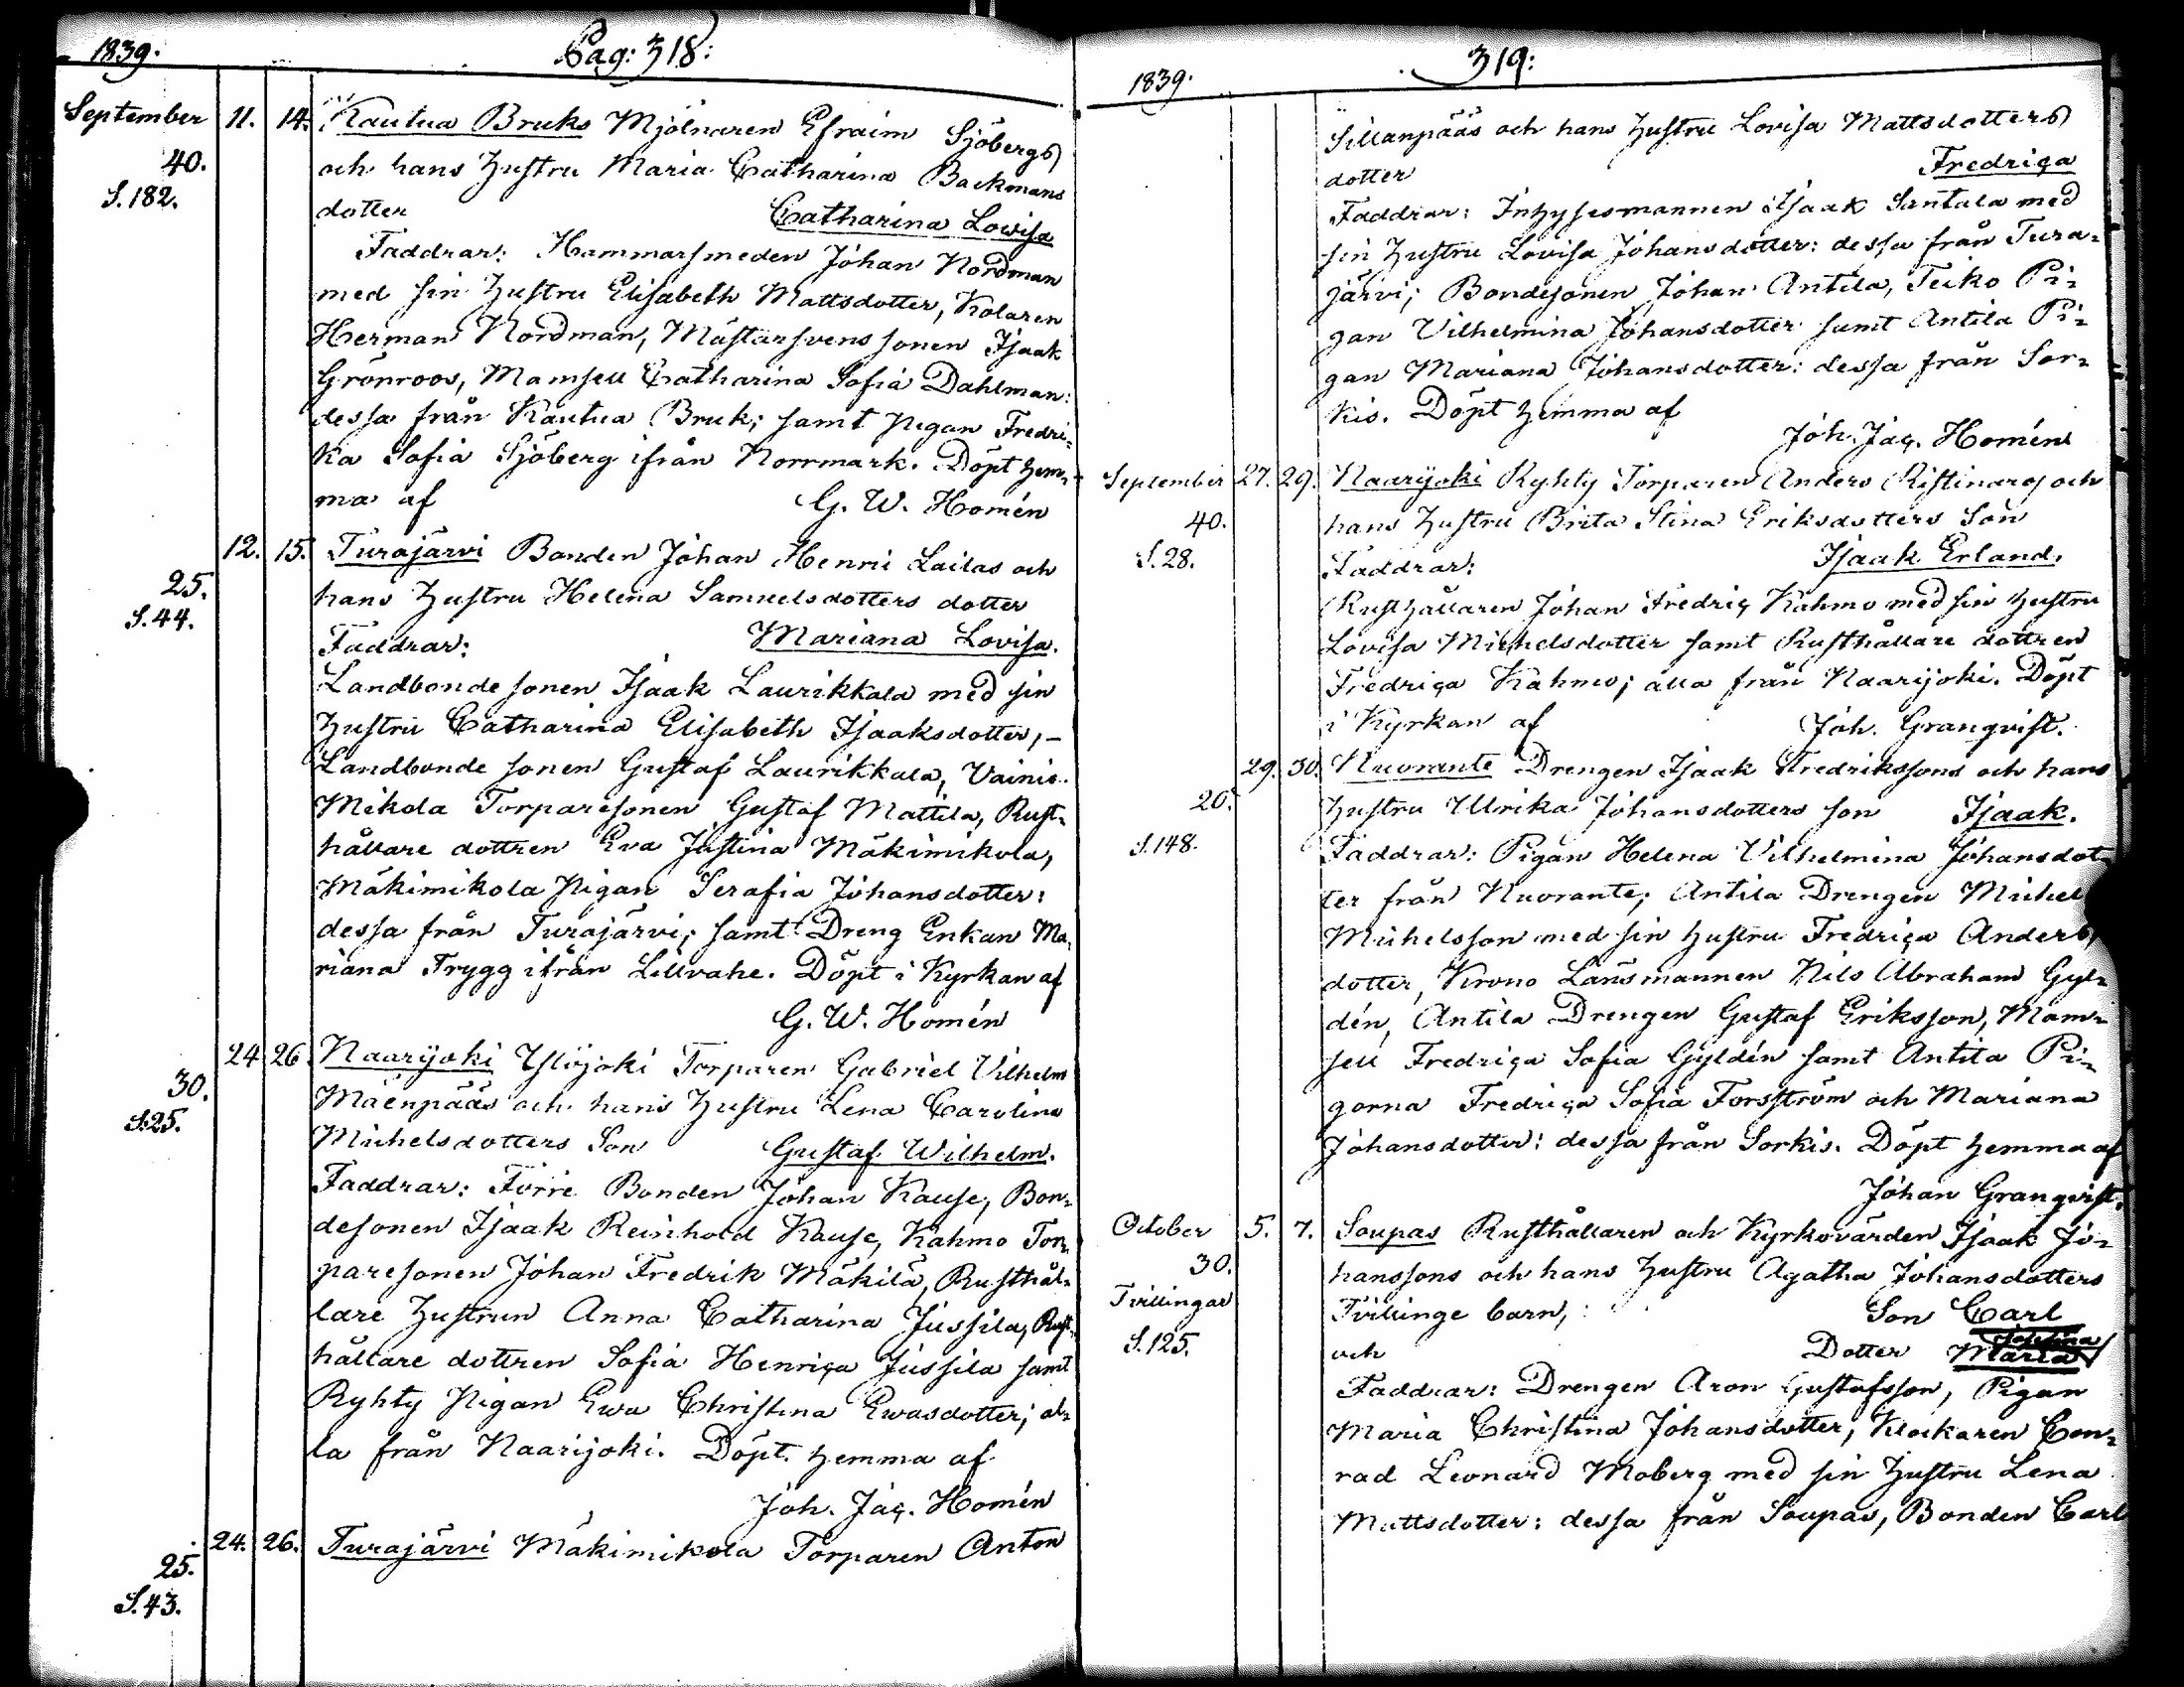 1839.
Pag: 318:
September 11. 14. Kautua Bruks Mjölnaren Efraim Sjöbergs
40.
och hans Hustru Maria Catharina Backmans
S. 182.
dotter Catharina Lovisa
Faddrar: Hammarsmeden Johan Nordman
med sin Hustru Elisabeth Mattsdotter, Kolaren
Herman Nordman, Mästarsvens sonen Isaak
Grönroos, Mamsell Catharina Sofia Dahlman:
dessa från Kautua Bruk; samt Pigan Fredri-
ka Sofia Sjöberg ifrån Norrmark. Döpt hem-
ma af G. W. Homén
12. 15. Turajärvi Bonden Johan Henric Lailas och
25.
hans Hustru Helena Samuelsdotters dotter
S. 44.
Faddrar: Mariana Lovisa.
Landbonde sonen Isaak Laurikkala med sin
Hustru Catharina Elisabeth Isaaksdotter, –
Landbonde sonen Gustaf Laurikkala, Vainio
Mikola Torparesonen Gustaf Mattila, Rust-
hållare dottren Eva Justina Mäkimikola,
Mäkimikola Pigan Serafia Johansdotter:
dessa från Turajärvi; samt Dreng Enkan Ma-
riana Trygg ifrån Lillvahe. Döpt i Kyrkan af
G. W. Homén
24 26 Naarijoki Ylöjoki Torparen Gabriel Vilhelm
30.
Mäenpääs och hans Hustru Lena Carolina
S. 25.
Michelsdotters Son Gustaf Wilhelm.
Faddrar: Förre Bonden Johan Kause, Bon-
desonen Isaak Reinhold Kause, Kahmo Tor-
paresonen Johan Fredrik Mäkilä, Rusthål-
lare Hustrun Anna Catharina Jussila, Rust-
hållare dottren Sofia Henrica Jussila samt
Ryhty Pigan Ewa Christina Ewasdotter; al-
la från Naarijoki. Döpt hemma af
Joh. Jac. Homén
24. 26. Turajärvi Mäkimikola Torparen Anton
25.
S. 43.
1839.
319:
Sillanpääs och hans Hustru Lovisa Mattsdotters
dotter Fredrica
Faddrar: Inhysesmannen Isaak Santala med
sin Hustru Lovisa Johansdotter: dessa från Tura-
järvi; Bondesonen Johan Antila, Teiko Pi-
gan Vilhelmina Johansdotter samt Antila Pi-
gan Mariana Johansdotter: dessa från Sor-
kis. Döpt hemma af
Joh. Jac. Homén
September 27. 29. Naarijoki Ryhty Torparen Anders Ristinars och
40.
hans Hustru Brita Stina Eriksdotters Son
S. 28.
Faddrar: Isaak Erland.
Rusthållaren Johan Fredric Kahmo med sin Hustru
Lovisa Michelsdotter samt Rusthållare dottren
Fredrica Kahmo; alla från Naarijoki. Döpt
i Kyrkan af Joh. Granqvist.
29. 30. Nuorante Drengen Isaak Fredrikssons och hans
20.
Hustru Ulrika Johansdotters son Isaak.
S. 148.
Faddrar: Pigan Helena Vilhelmina Johansdot-
ter från Nuorante; Antila Drengen Michel
Michelsson med sin Hustru Fredrica Anders
dotter, Krono Länsmannen Nils Abraham Gyl-
dén, Antila Drengen Gustaf Eriksson, Mam-
sell Fredrica Sofia Gyldén samt Antila Pi-
gorna Fredrica Sofia Forsström och Mariana
Johansdotter: dessa från Sorkis. Döpt hemma af
Johan Granqvist.
October 5. 7. Soupas Rusthållaren och Kyrkovärden Isaak Jo-
30.
hanssons och hans Hustru Agatha Johansdotters
Tvillingar
Tvillinge barn, Son Carl
S. 125.
och Dotter Maria
Faddrar: Drengen Aron Gustafsson, Pigan
Maria Christina Johansdotter, Klockaren Con-
rad Leonard Moberg med sin Hustru Lena
Mattsdotter: dessa från Soupas, Bonden Carl